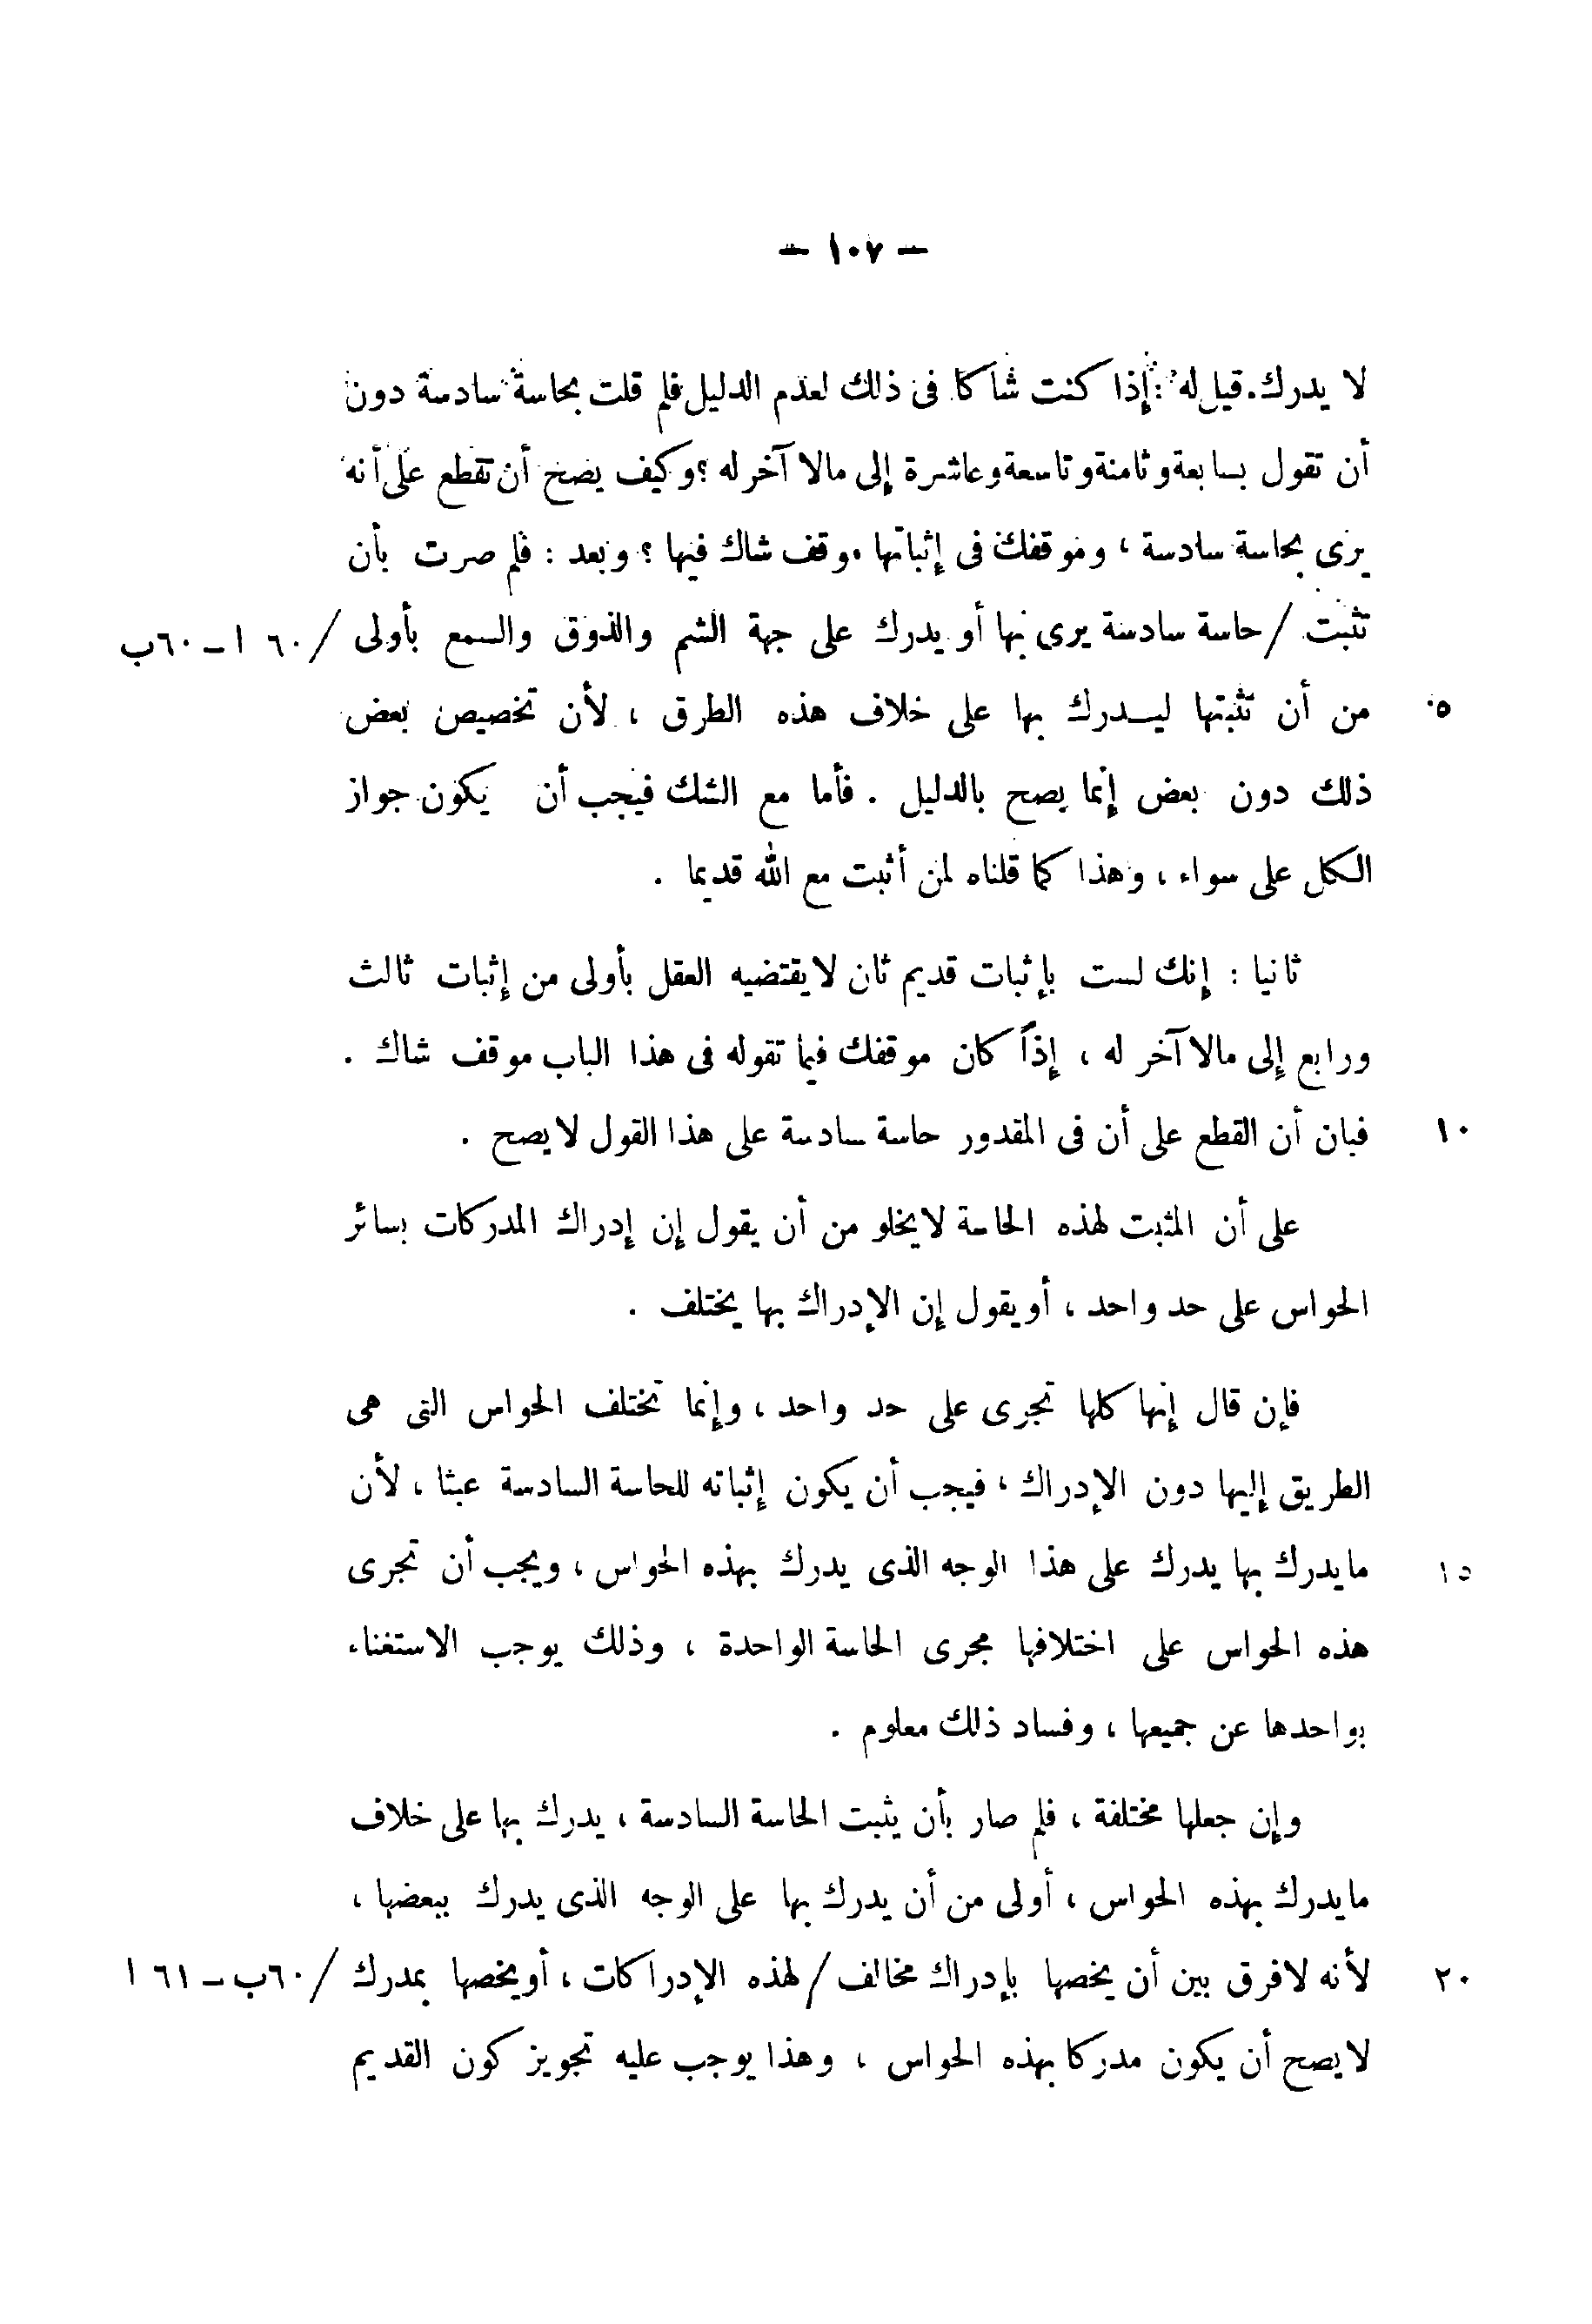 — ١٠٧ —
لا يدرك. قيل له : إذا كنت شاكا فى ذلك لعدم الدليل فلم قلت بحاسة سادسة دون
أن تقول بسابعة وثامنة وتاسعة وعاشرة إلى مالا آخر له ؟ وكيف يصح أن تقطع على أنه
يرى بحاسة سادسة ، وموقفك فى إثباتها موقف شاك فيها ؟ وبعد : فلم صرت بأن
تثبت / حاسة سادسة يرى بها أو يدرك على جهة الشم والذوق والسمع بأولى / ٦٠ ا – ٦٠ب
٥ من أن تثبتها ليــدرك بها على خلاف هذه الطرق ، لأن تخصيص بعض
ذلك دون بعض إنما يصح بالدليل . فأما مع الشك فيجب أن يكون جواز
الكل على سواء ، وهذا كما قلناه لمن أثبت مع الله قديما .
ثانيا : إنك لست بإثبات قديم ثان لايقتضيه العقل بأولى من إثبات ثالث
ورابع إلى مالا آخر له ، إذاً كان موقفك فيما تقوله فى هذا الباب موقف شاك .
١٠ فبان أن القطع على أن فى المقدور حاسة سادسة على هذا القول لايصح .
على أن المثبت لهذه الحاسة لايخلو من أن يقول إن إدراك المدركات بسائر
الحواس على حد واحد ، أو يقول إن الإدراك بها يختلف .
فإن قال إنها كلها تجرى على حد واحد ، وإنما تختلف الحواس التى هى
الطريق إليها دون الإدراك ، فيجب أن يكون إثباته للحاسة السادسة عبثا ، لأن
١٥ مايدرك بها يدرك على هذا الوجه الذى يدرك بهذه الحواس ، ويجب أن تجرى
هذه الحواس على اختلافها مجرى الحاسة الواحدة ، وذلك يوجب الاستغناء
بواحدها عن جميعها ، وفساد ذلك معلوم .
وإن جعلها مختلفة ، فلم صار بأن يثبت الحاسة السادسة ، يدرك بها على خلاف
مايدرك بهذه الحواس ، أولى من أن يدرك بها على الوجه الذى يدرك ببعضها ،
٢٠ لأنه لافرق بين أن يخصها بإدراك مخالف / لهذه الإدراكات ، أو يخصها بمدرك / ٦٠ب – ٦١ ا
لايصح أن يكون مدركا بهذه الحواس ، وهذا يوجب عليه تجويز كون القديم